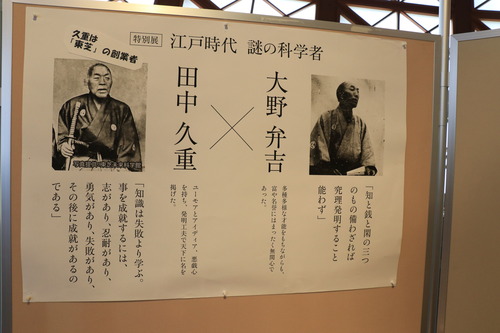 特別展 江戸時代 謎の科学者
久重は
「東芝」の創業者
大野弁吉
×
田中久重
多種多様なす能をもちながらも、
富や名誉にはまったく無関心で
あった。
ユーモアとアイディア、悪戯心
を持ち、発明工夫で天下に名を
掲げた。
「知と銭と閑の三つ
のもの備わざれば
究理発明すること
能わず」
「知識は失敗より学ぶ。
事を成就するには、
志があり、忍耐があり、
勇気があり、失敗があり、
その後に成就があるの
である」